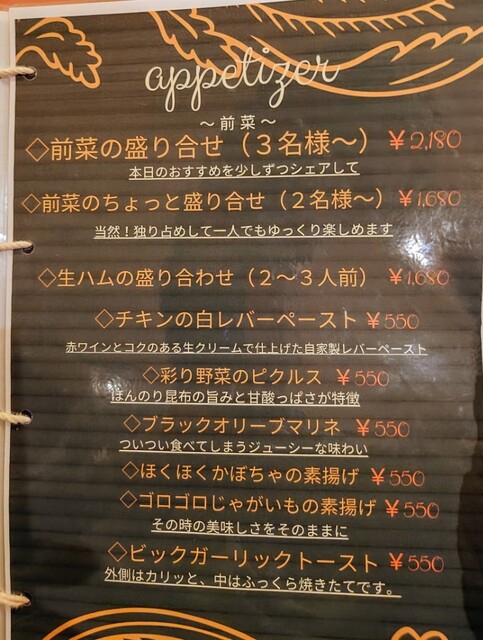 appetizer
～前菜～
◇前菜の盛り合せ（３名様～）￥2,180
本日のおすすめを少しずつシェアして
◇前菜のちょっと盛り合せ（２名様～）￥1,680
当然！独り占めして一人でもゆっくり楽しめます
◇生ハムの盛り合わせ（２～３人前）￥1,680
◇チキンの白レバーペースト ￥550
赤ワインとコクのある生クリームで仕上げた自家製レバーペースト
◇彩り野菜のピクルス ￥550
ほんのり昆布の旨みと甘酸っぱさが特徴
◇ブラックオリーブマリネ ￥550
ついつい食べてしまうジューシーな味わい
◇ほくほくかぼちゃの素揚げ ￥550
◇ゴロゴロじゃがいもの素揚げ ￥550
その時の美味しさをそのままに
◇ビックガーリックトースト ￥550
外側はカリッと、中はふっくら焼きたてです。